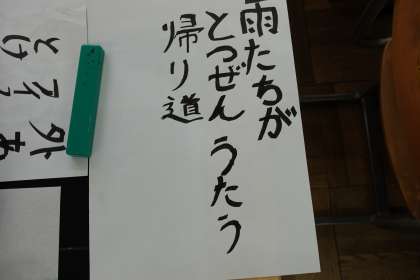 雨たちが
とつぜん うたう
帰り道
外 あ